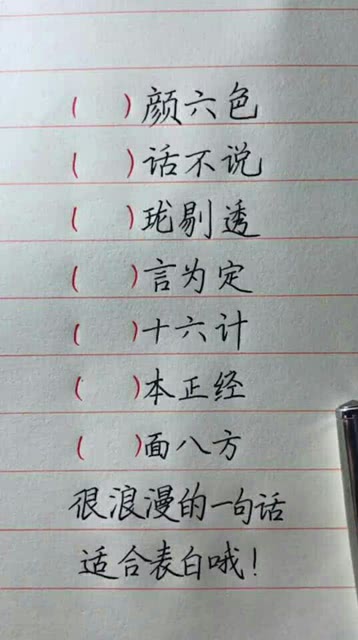 ( )颜六色
( )话不说
( )珑剔透
( )言为定
( )十六计
( )本正经
( )面八方
很浪漫的一句话
适合表白哦!